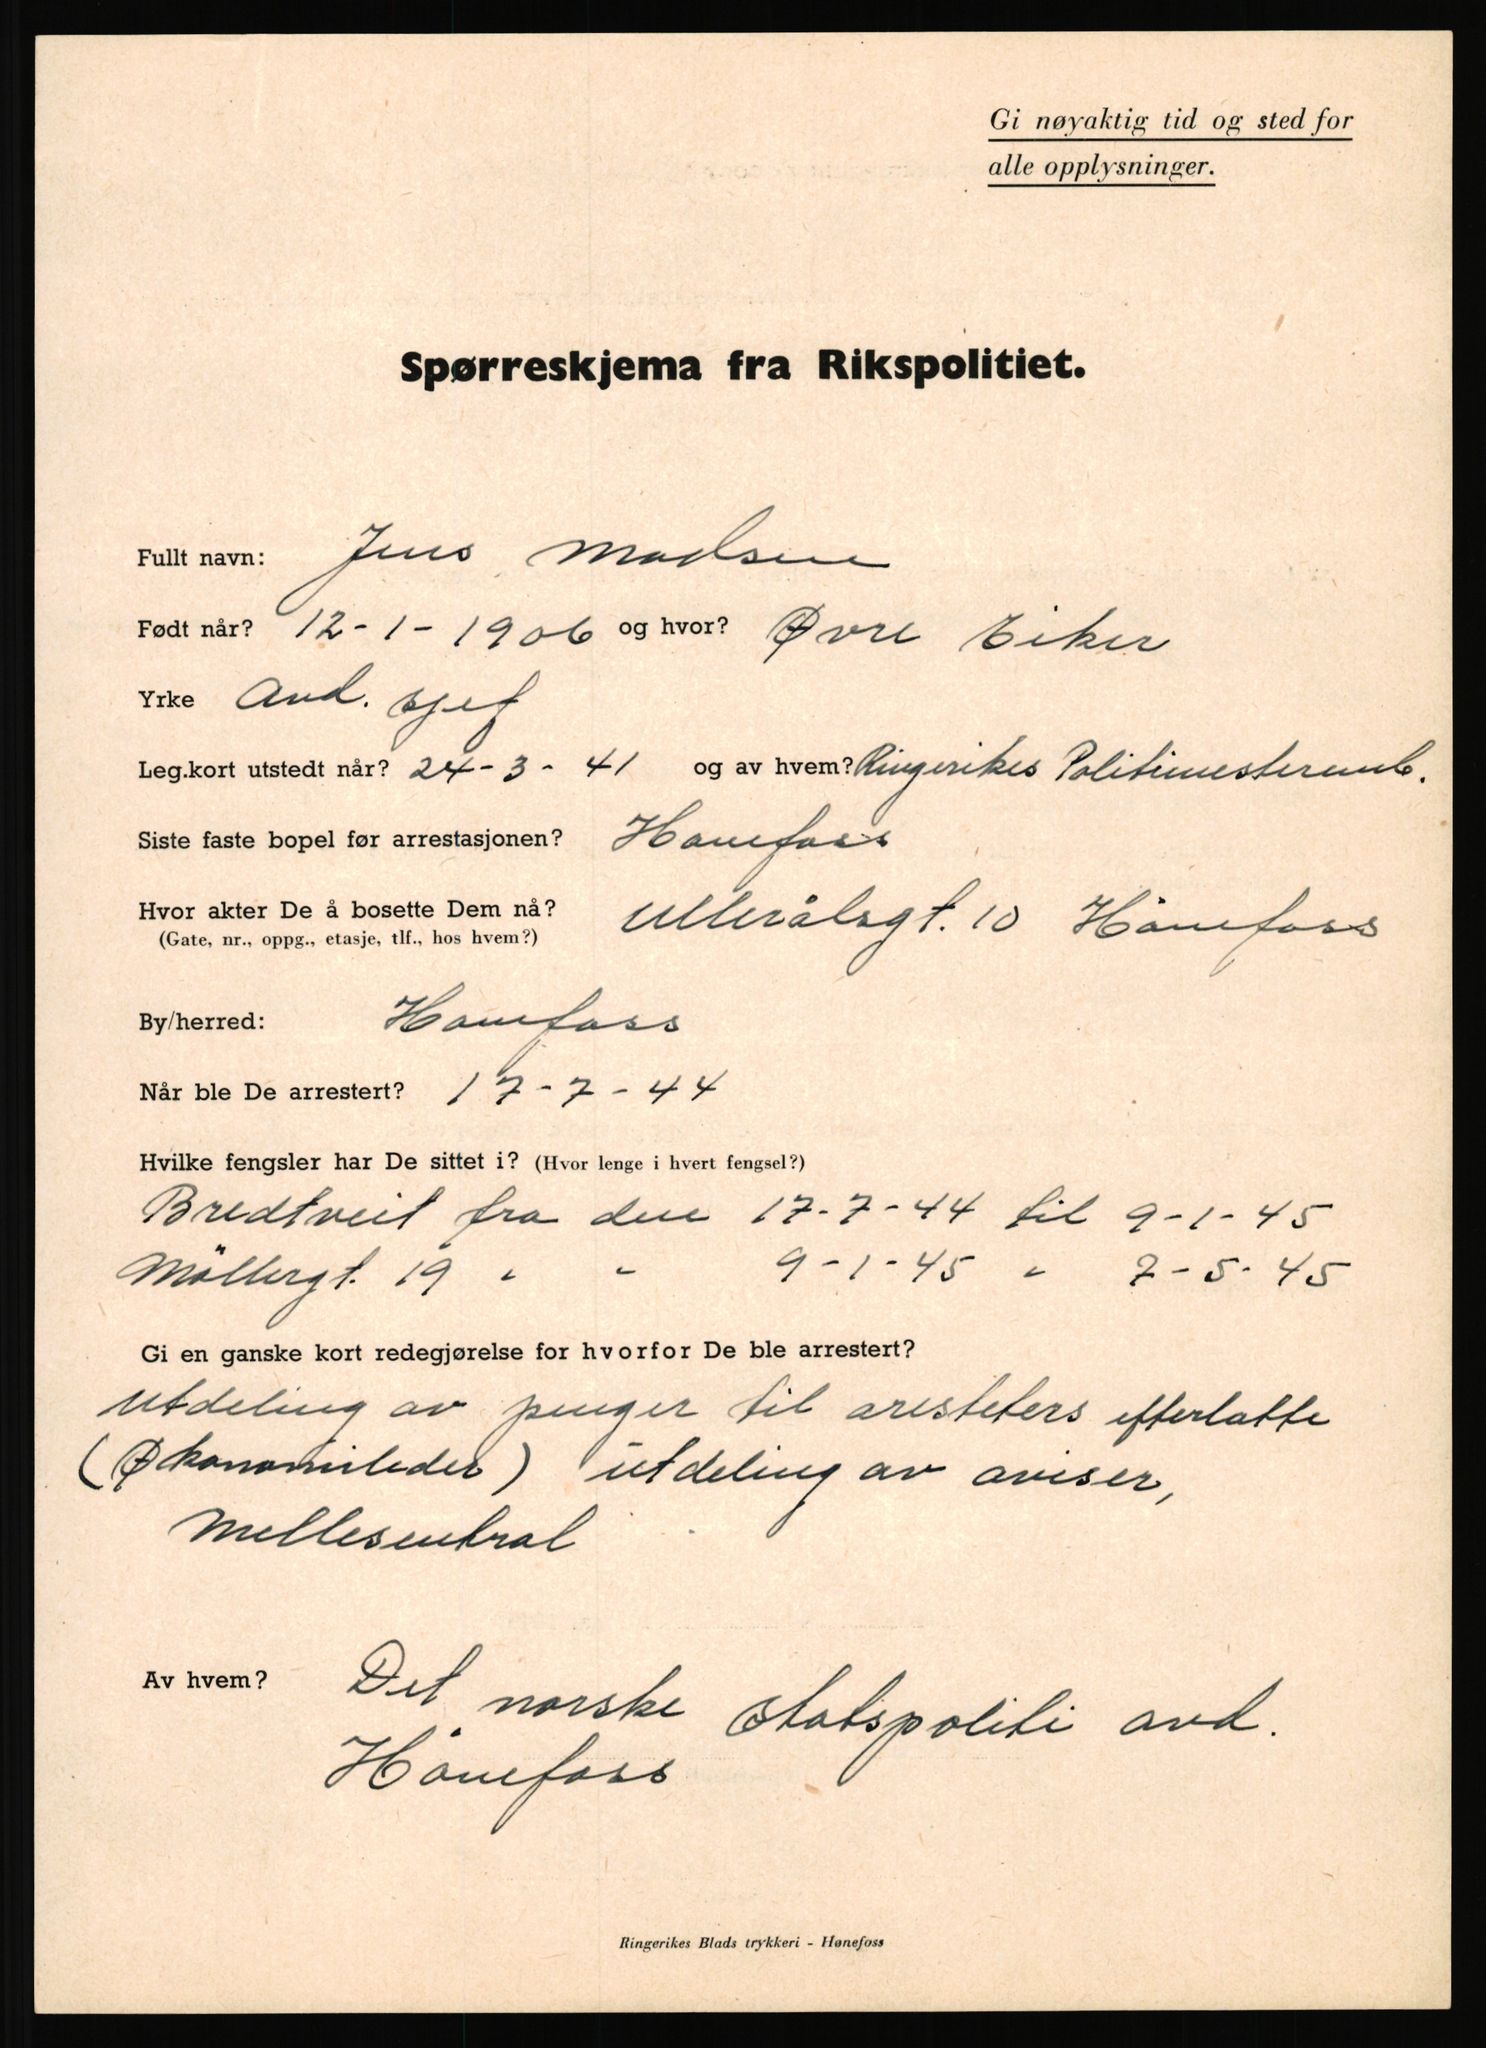 Gi nøyaktig tid og sted for
alle opplysninger.
Spørreskjema fra Rikspolitiet.
Fullt navn: Jens Madsen
Født når? 12-1-1906 og hvor? Øvre Eiker
Yrke Avd. sjef
Leg.kort utstedt når? 24-3-41 og av hvem? Ringerikes Politimesteremb.
Siste faste bopel før arrestasjonen? Hønefoss
Hvor akter De å bosette Dem nå? Ullerålsgt. 10 Hönefoss
(Gate, nr., oppg., etasje, tlf., hos hvem?)
By/herred: Hønefoss
Når ble De arrestert? 17-7-44
Hvilke fengsler har De sittet i? (Hvor lenge i hvert fengsel?)
Bredtveit fra den 17-7-44 til 9-1-45
Möllergt. 19 " " 9-1-45 " 7-5-45
Gi en ganske kort redegjørelse for hvorfor De ble arrestert?
utdeling av penger til aresteters efterlatte
(Økonomileder) utdeling av aviser,
Mellesentral
Av hvem? Det norske Statspoliti avd.
Hönefoss
Ringerikes Blads trykkeri - Hønefoss